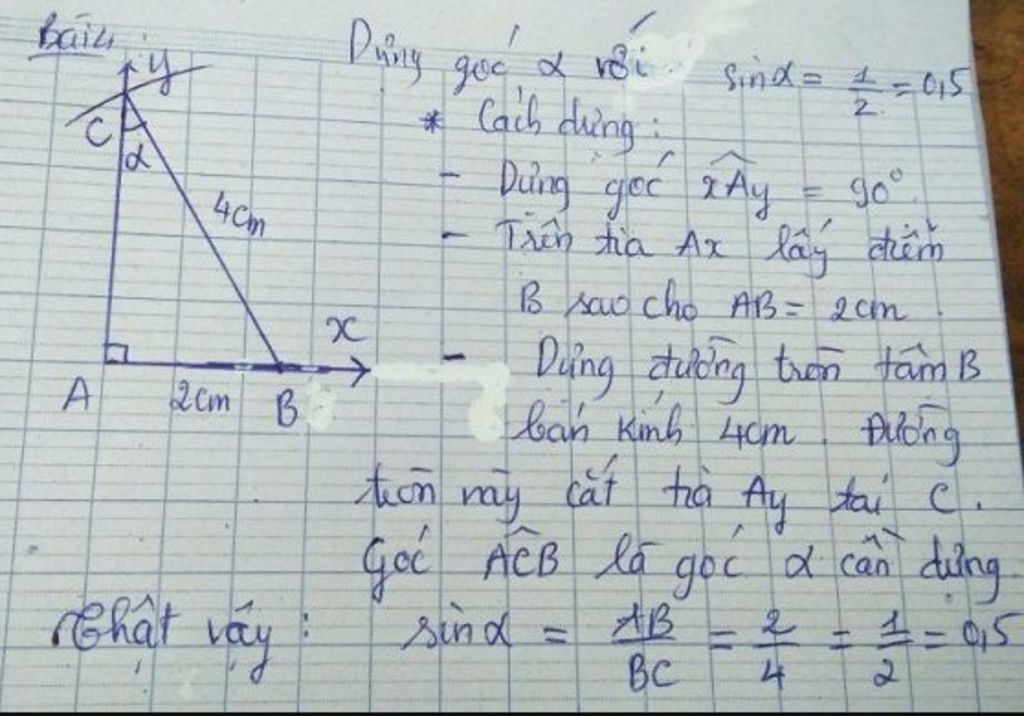 Bài 4
Dựng góc α với sinα = 1/2 = 0,5
* Cách dựng :
- Dựng góc xAy = 90°
- Trên tia Ax lấy điểm
B sao cho AB = 2cm.
- Dựng đường tròn tâm B
bán kính 4cm. Đường
tròn này cắt tia Ay tại C.
Góc ACB là góc α cần dựng
Thật vậy : sinα = AB/BC = 2/4 = 1/2 = 0,5
y
C
α
4cm
x
A
2cm
B